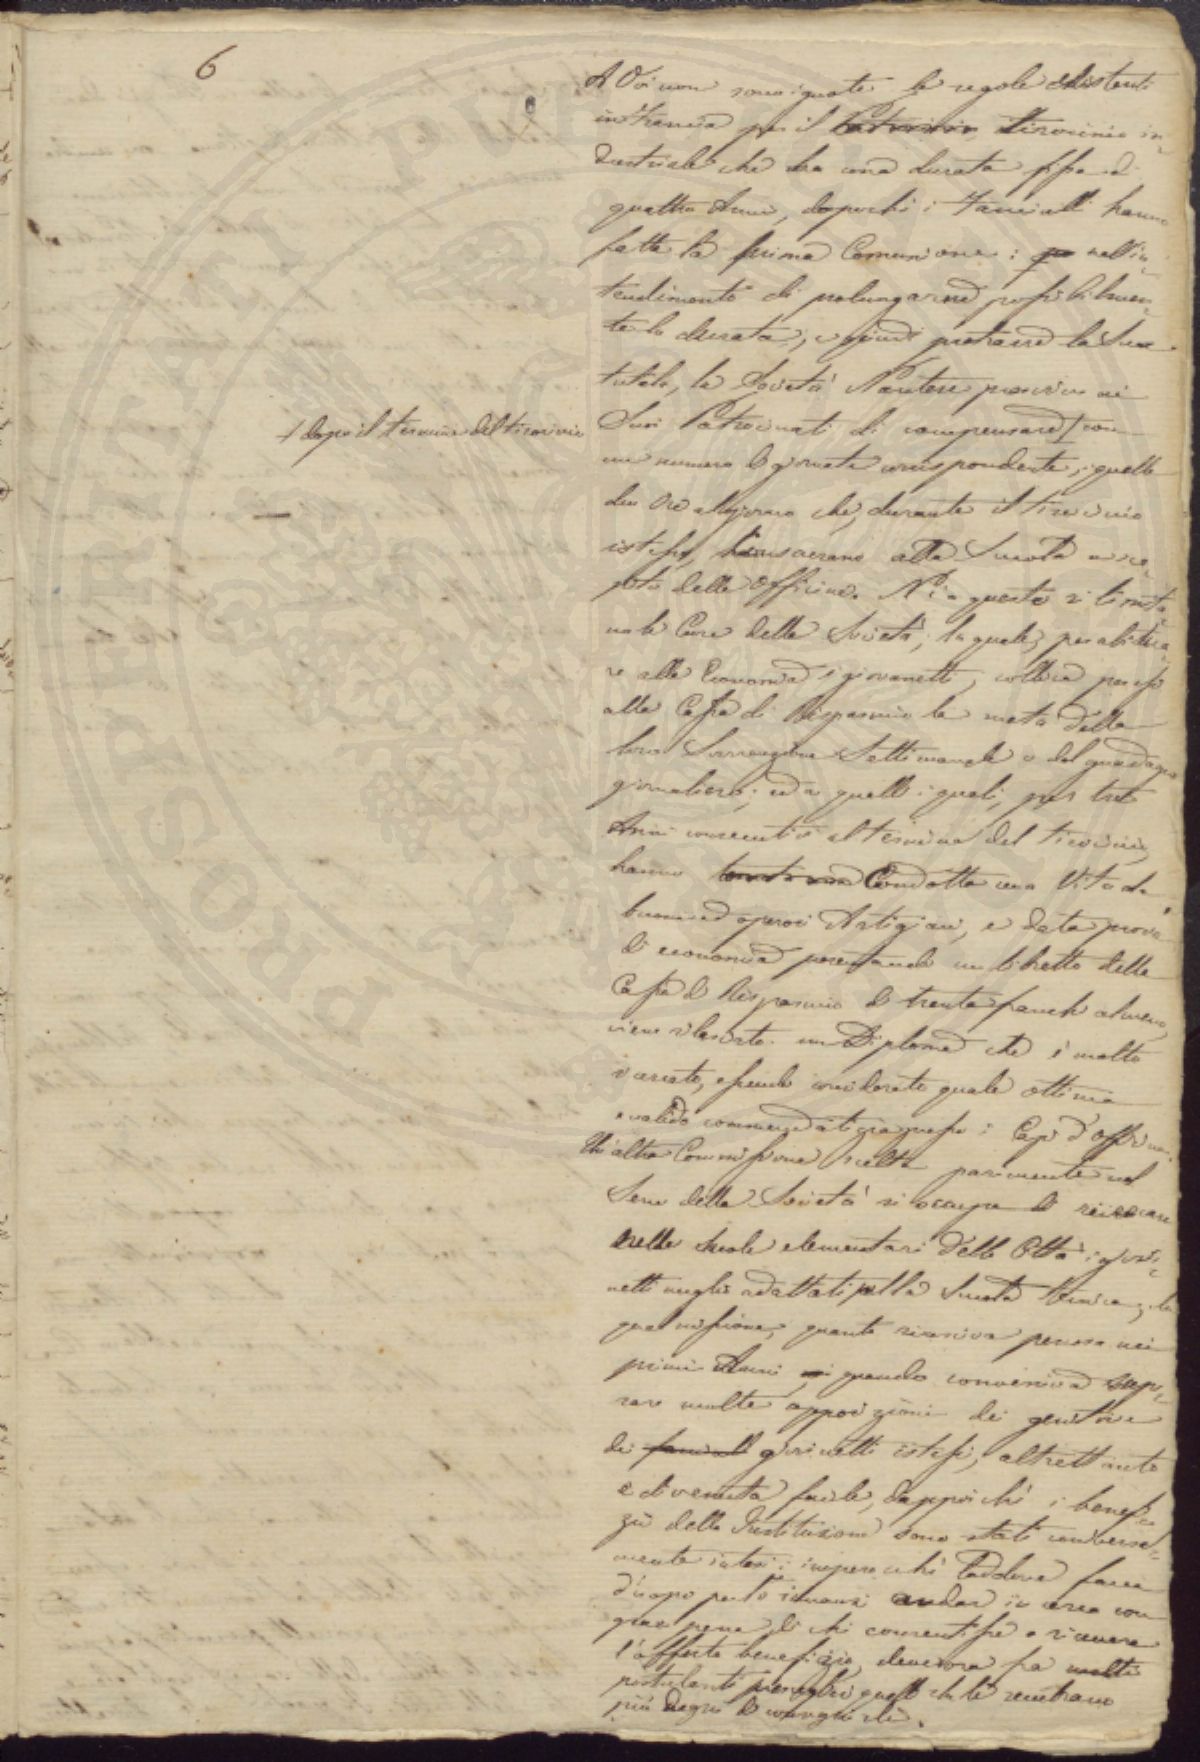 6
A Voi non sono ignote le regole esistenti
in Francia per il tirocinio in-
dustriale che ha una durata fissa di
quattro Anni, dopochè i fanciulli hanno
fatta la prima Comunione: nell'in-
tendimento di prolungarne possibilmen-
te la durata, e quindi protrarre la sua
tutela, la Società Nantese prescrive ai
Suoi Patrocinati di compensare + con
+ dopo il termine del tirocinio
un numero di giornate corrispondente, quelle
due ore al giorno che, durante il tirocinio
istesso, consacrano alla Scuola a sca-
pito delle Officine. Nè a questo si limita-
no le Cure della Società, la quale, per abitua-
re alla Economia i giovanetti, colloca per essi
alla Cassa di Risparmio la metà della
loro Sovvenzione Settimanale o del guadagno
giornaliero; ed a quelli i quali, per tre
Anni consecutivi al termine del tirocinio,
hanno Condotta una Vita da
buoni ed operosi Artigiani, e data prova
di economia presentando un libretto della
Cassa di Risparmio di trenta franchi almeno,
viene rilasciato un Diploma che è molto
, essendo considerato quale ottima
e valida commendatizia presso i Capi d'Officina.
Un'altra Commissione scelta parimente nel
Seno della Società si occupa di ricercare
nelle scuole elementari della Città i giovi-
netti meglio adattati per la Scuola tecnica, la
qual missione, quanto riusciva penosa nei
primi Anni, quando conveniva supe-
rare molte opposizioni dei genitori e
dei fanciulli giovinetti istessi, altrettanto
è divenuta facile, dappoichè i benefi-
zii della Instituzione sono stati universal-
mente intesi: imperocchè laddove facea
d'uopo per lo innanzi andar in cerca con
gran pena di chi consentisse a ricevere
l'offerto benefizio, devesi ora fra molti
postulanti prescegliere quelli che le sembrano
più degni di conseguirlo.